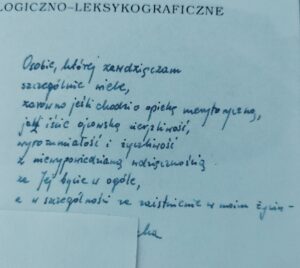 LOGICZNO-LEKSYKOGRAFICZNE
Osobie, której zawdzięczam
szczególnie wiele,
zarówno jeśli chodzi o opiekę merytoryczną,
jak iście ojcowską cierpliwość,
wyrozumiałość i życzliwość
z niewypowiedzianą wdzięcznością
za Jej bycie w ogóle,
a w szczególności za zaistnienie w moim życiu -